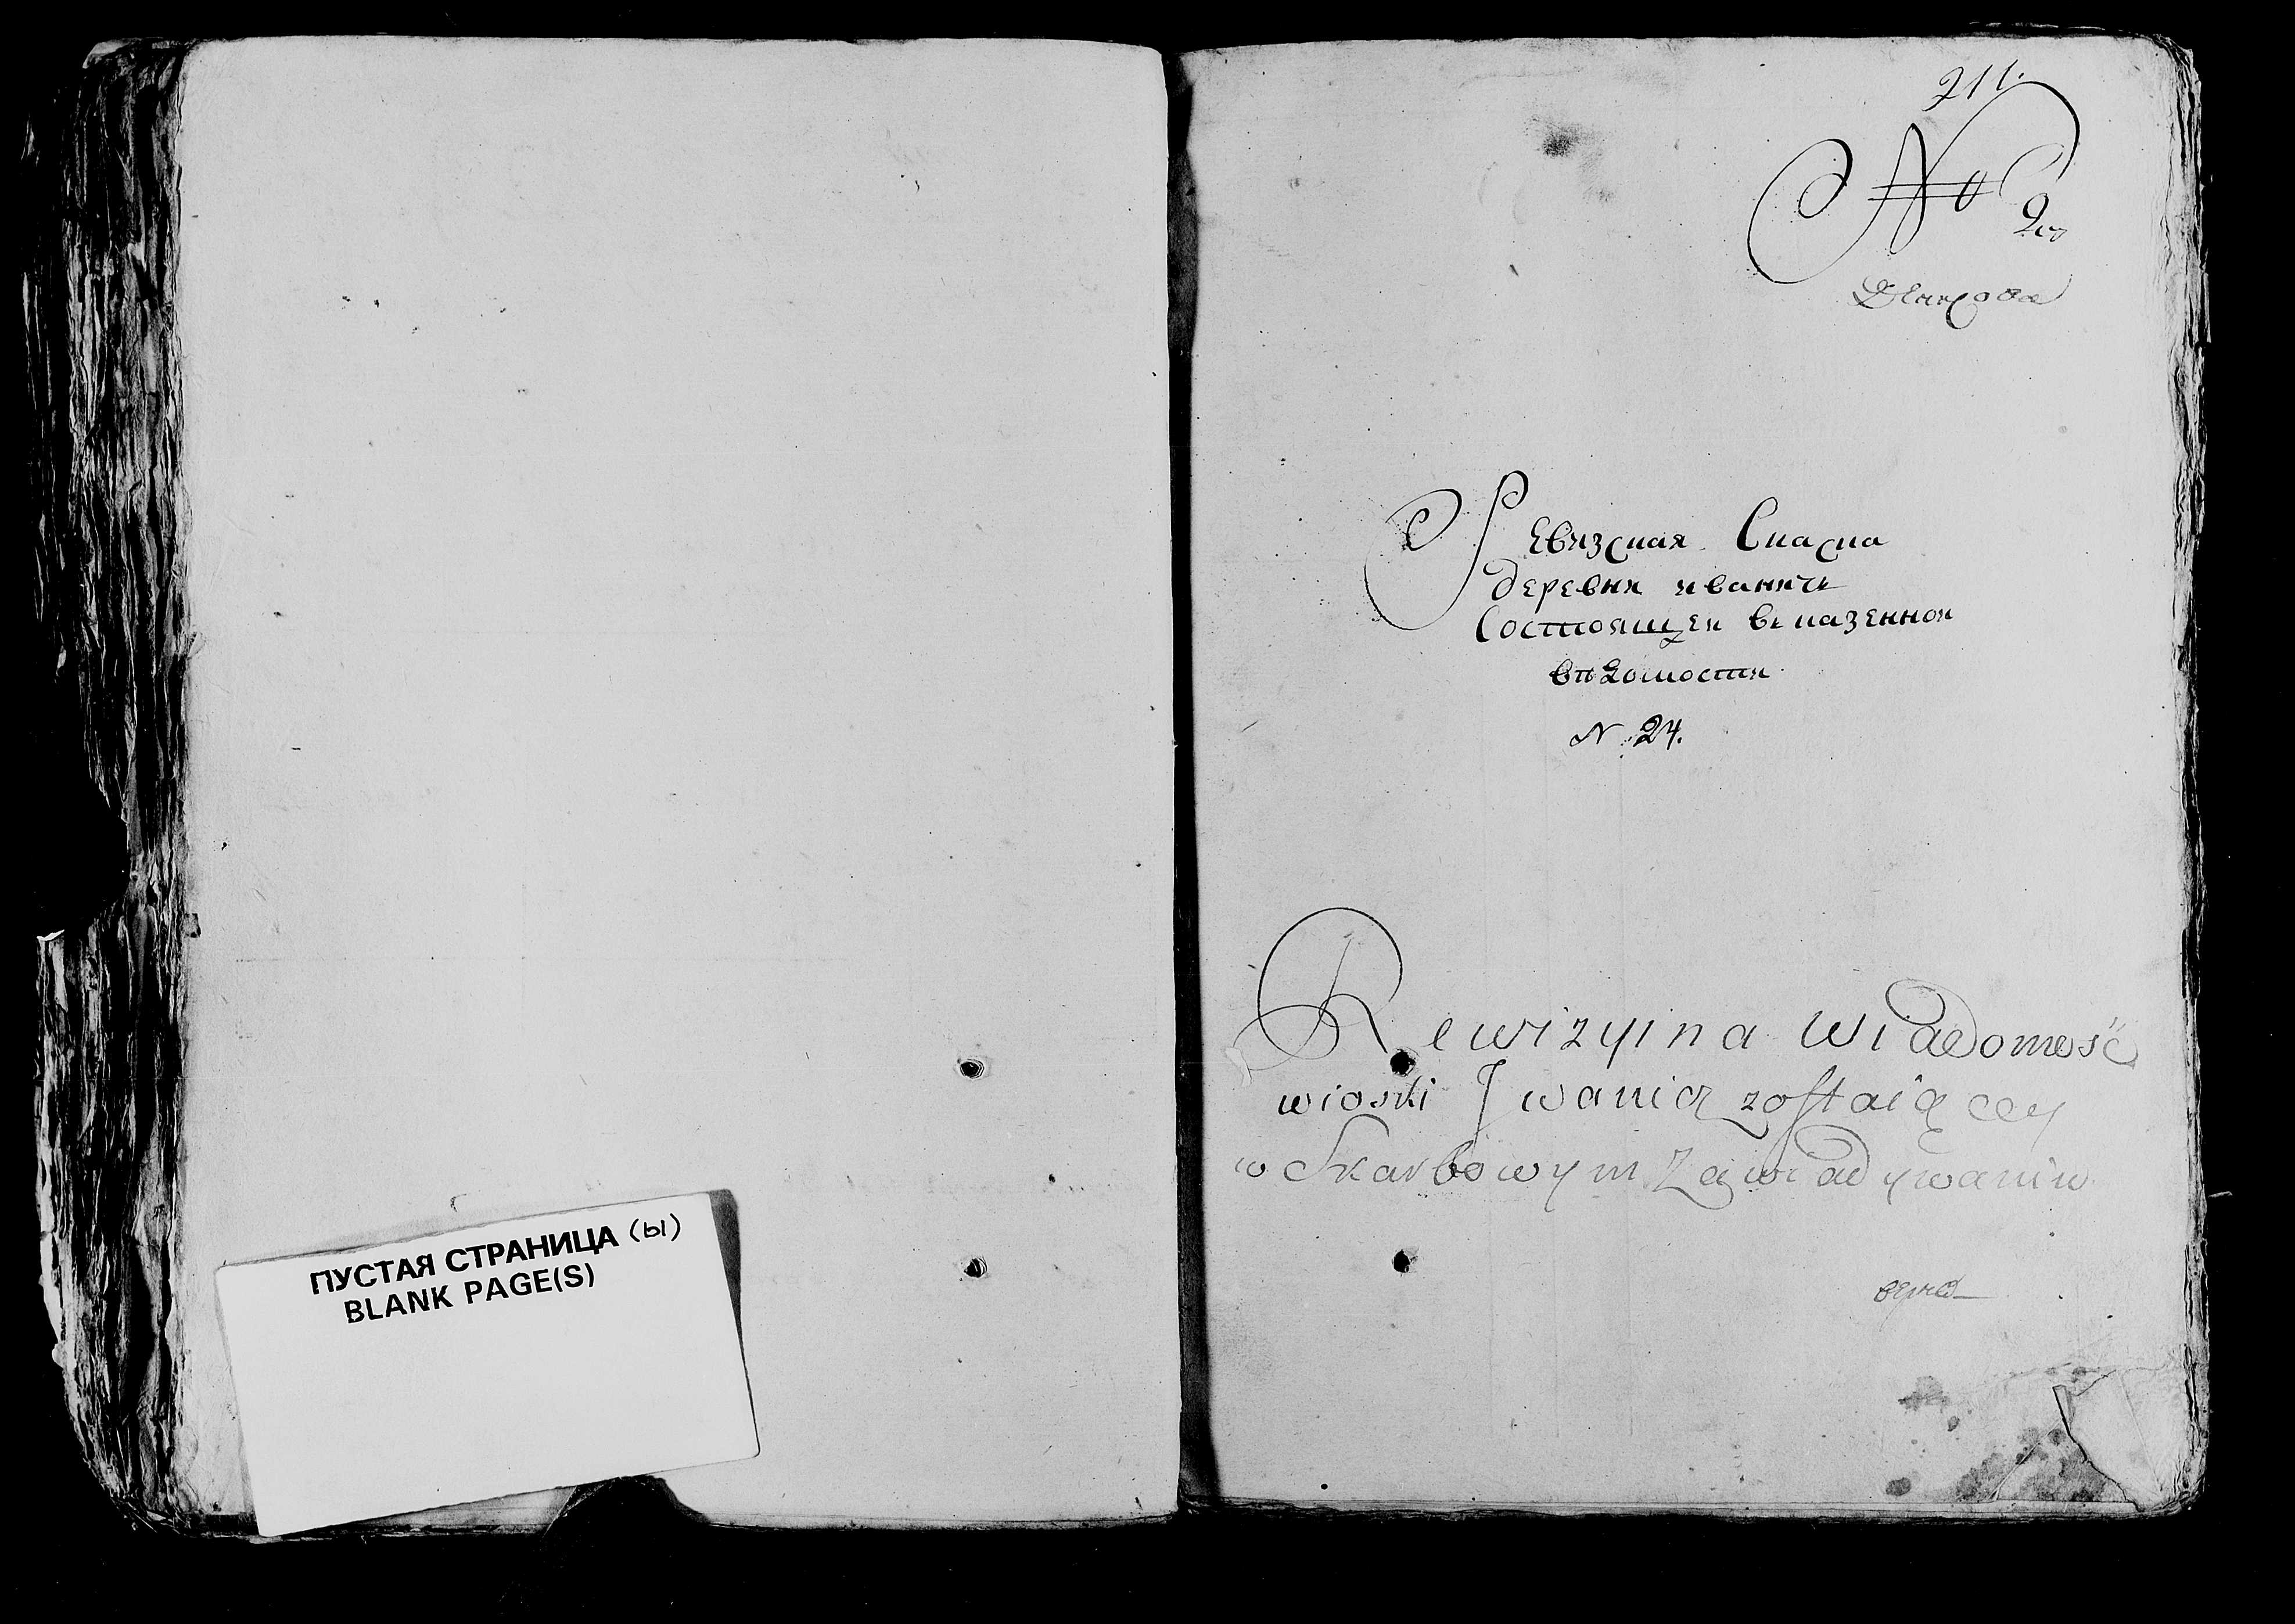 ПУСТАЯ СТРАНИЦА (ы)
BLANK PAGE(S)
211.
No 2го
Ревизская Сказка
деревни иваничь
Состоящеи вь казеннои
вѣдомости
N 24.
Rewizyina Wiadomość
wioski Jwanicz zostaiącey
w Skarbowym Zawiadywaniu